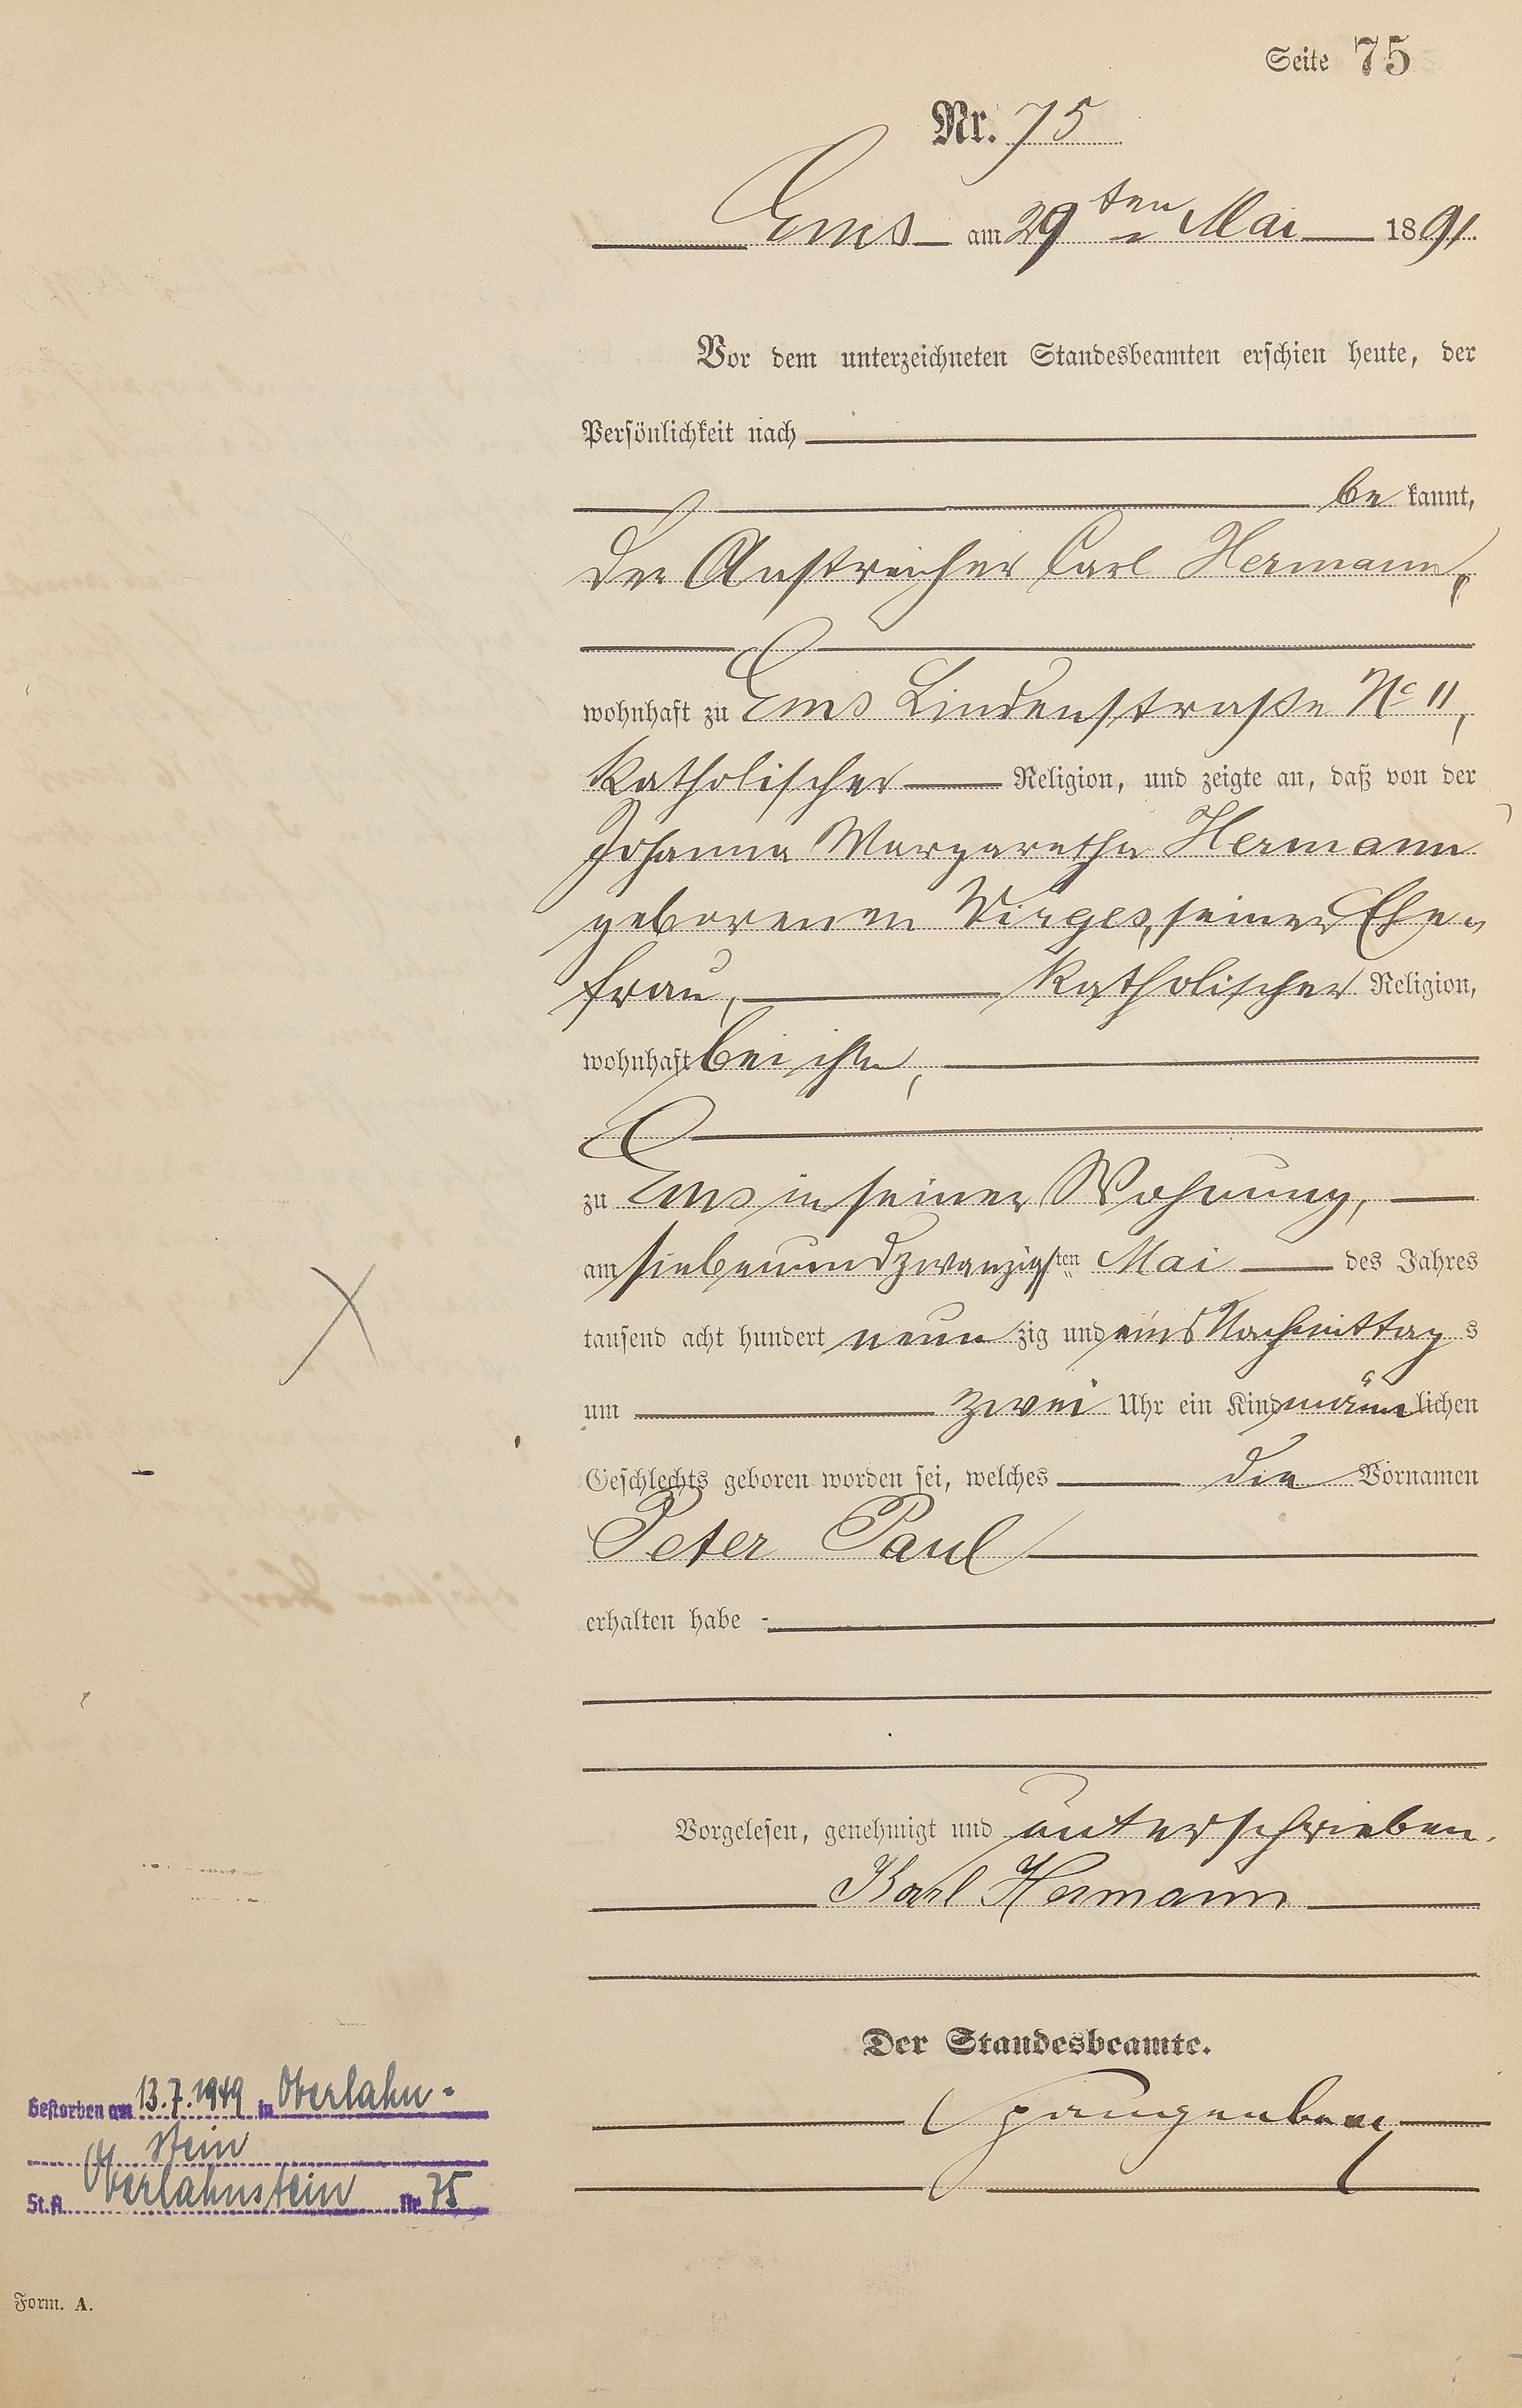 Seite 75
Nr. 75
Ems am 29ten Mai 1891
Vor dem unterzeichneten Standesbeamten erschien heute, der
Persönlichkeit nach
be kannt,
der Anstreicher Carl Hermann,
wohnhaft zu Ems Lindenstraße No 11,
katholischer Religion, und zeigte an, daß von der
Johanna Margaretha Hermann
geborenen Virges, seiner Ehe-
frau, katholischer Religion,
wohnhaft bei ihm,
zu Ems in seiner Wohnung,
am siebenundzwanzigsten Mai des Jahres
tausend acht hundert neun zig und eins Nachmittag s
um zwei Uhr ein Kind männlichen
Geschlechts geboren worden sei, welches die Vornamen
Peter Paul
erhalten habe
Vorgelesen, genehmigt und unterschrieben.
Karl Hermann
Der Standesbeamte.
Spangenberg
Gestorben am 13.7.1949 in Oberlahn-
stein
St.A. Oberlahnstein Nr. 75
Form. A.